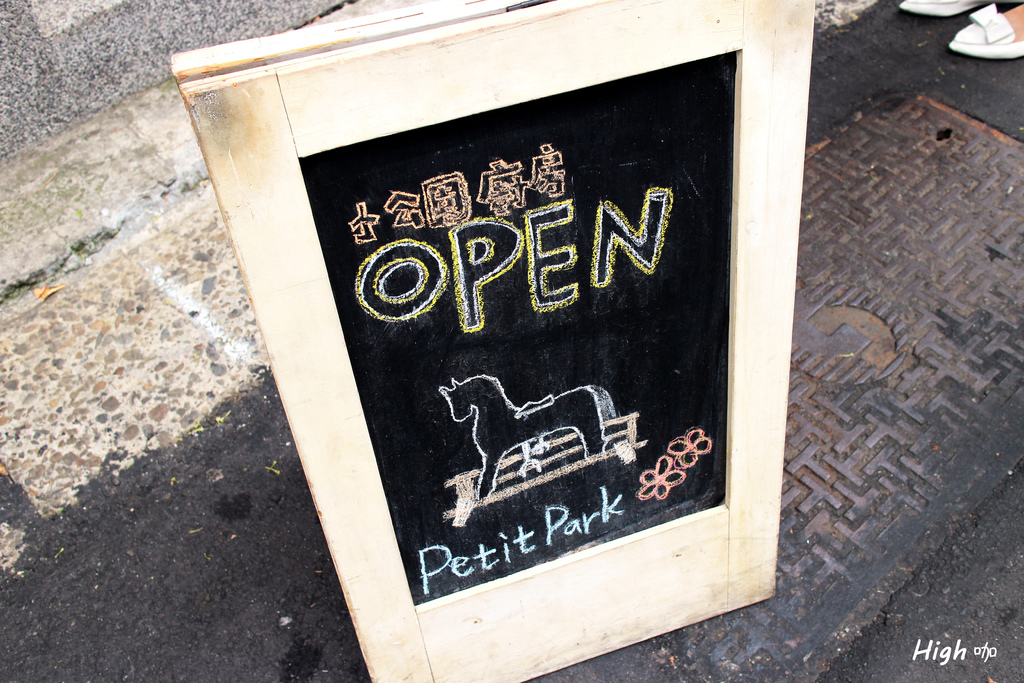 小公園廚房
OPEN
Petit Park
High 咖